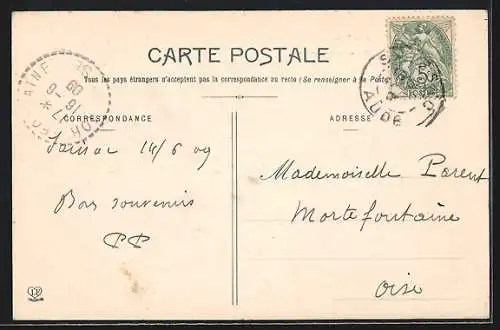 CARTE POSTALE
Tous les pays étrangers n'acceptent pas la correspondance au recto (Se renseigner à la Poste)
CORRESPONDANCE
ADRESSE
14/6 09
Bons souvenirs
PP
Mademoiselle Parent
Mortefontaine
Oise
AUDE